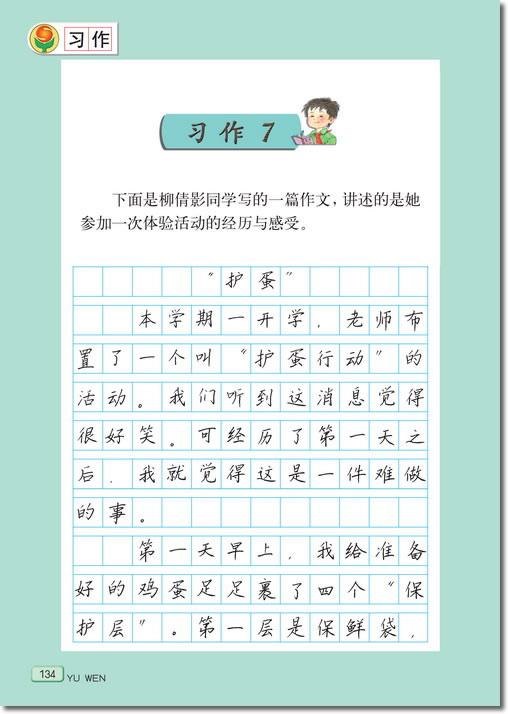 习作
习作 7
下面是柳倩影同学写的一篇作文，讲述的是她
参加一次体验活动的经历与感受。
“护蛋”
本学期一开学，老师布
置了一个叫“护蛋行动”的
活动。我们听到这消息觉得
很好笑。可经历了第一天之
后，我就觉得这是一件难做
的事。
第一天早上，我给准备
好的鸡蛋足足裹了四个“保
护层”。第一层是保鲜袋，
134
YU WEN